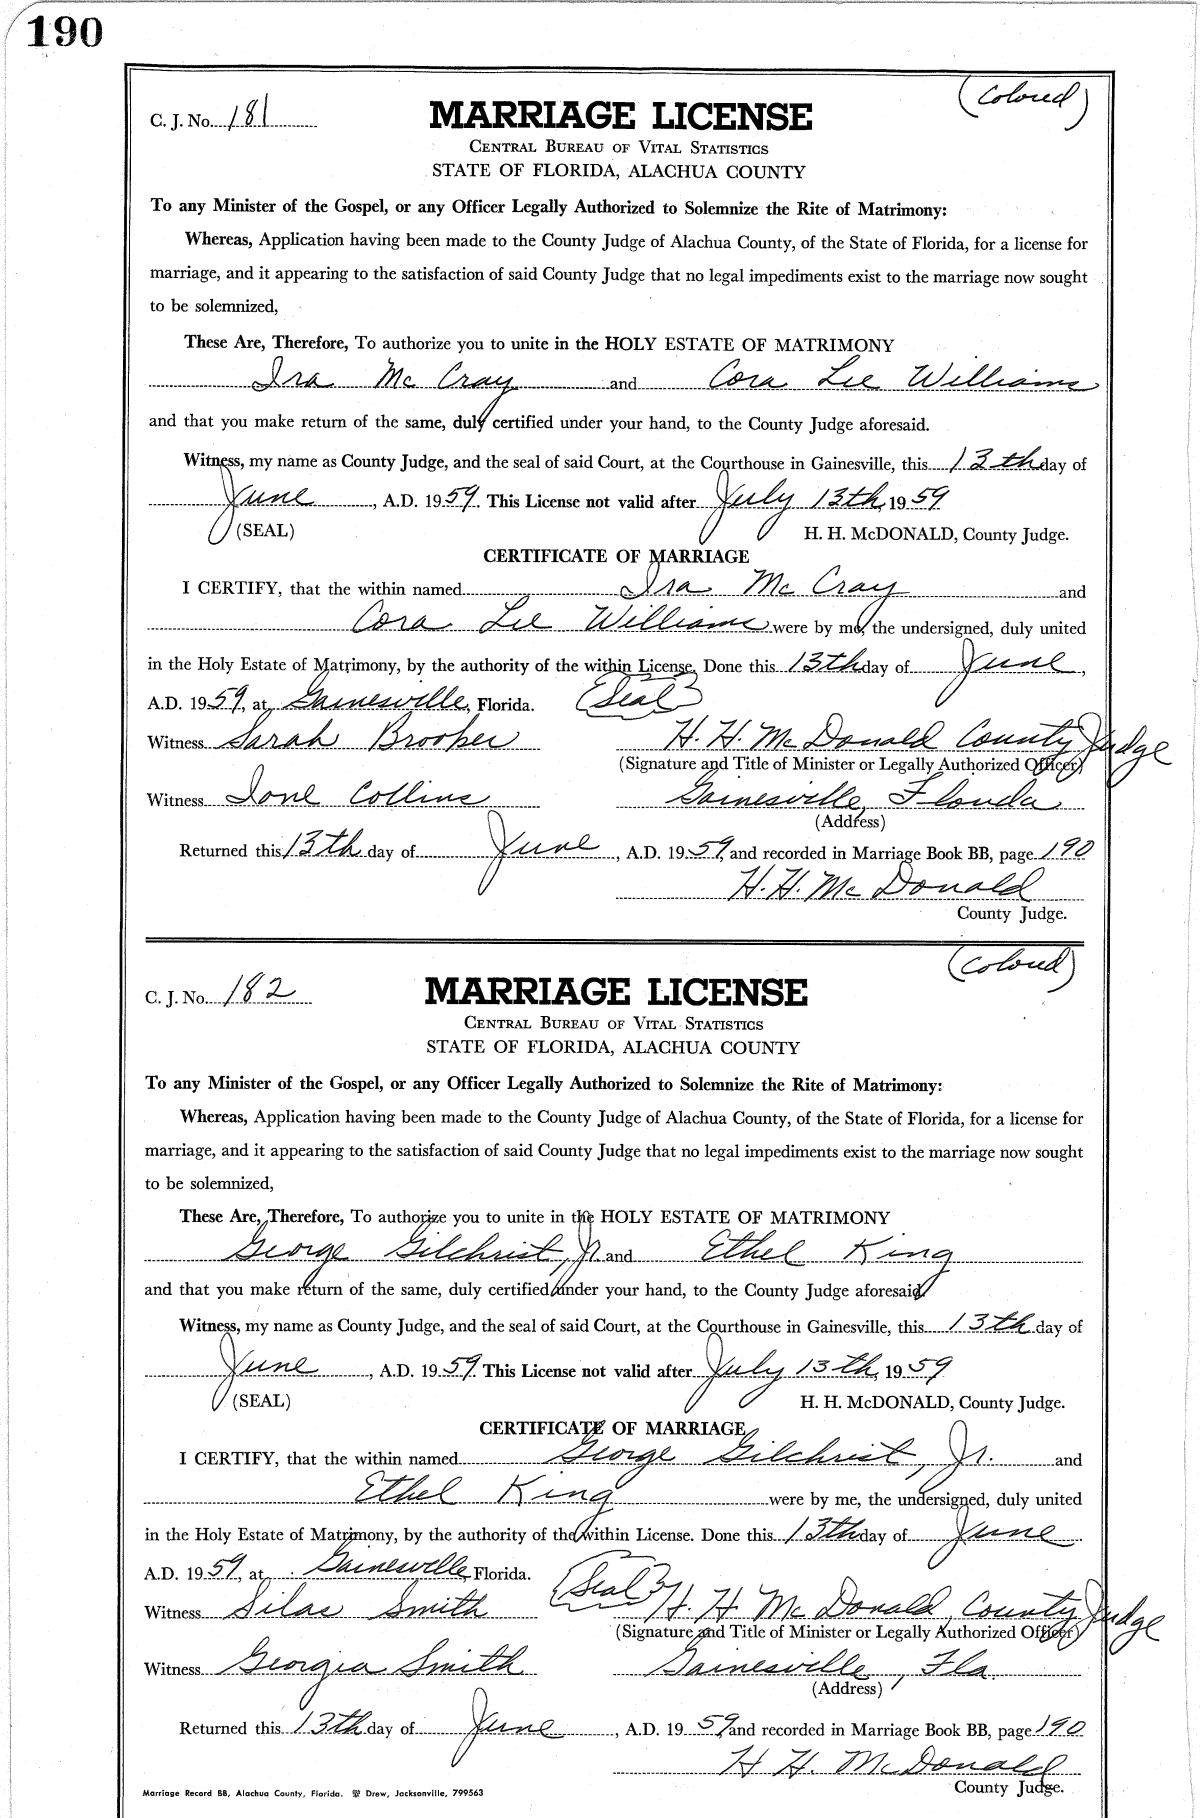 190
(Colored)
C. J. No. 181
MARRIAGE LICENSE
CENTRAL BUREAU OF VITAL STATISTICS
STATE OF FLORIDA, ALACHUA COUNTY
To any Minister of the Gospel, or any Officer Legally Authorized to Solemnize the Rite of Matrimony:
Whereas, Application having been made to the County Judge of Alachua County, of the State of Florida, for a license for
marriage, and it appearing to the satisfaction of said County Judge that no legal impediments exist to the marriage now sought
to be solemnized,
These Are, Therefore, To authorize you to unite in the HOLY ESTATE OF MATRIMONY
Ira McCray and Cora Lee Williams
and that you make return of the same, duly certified under your hand, to the County Judge aforesaid.
Witness, my name as County Judge, and the seal of said Court, at the Courthouse in Gainesville, this 13th day of
June, A.D. 1959. This License not valid after July 13th, 1959
(SEAL) H. H. McDONALD, County Judge.
CERTIFICATE OF MARRIAGE
I CERTIFY, that the within named Ira McCray and
Cora Lee Williams were by me, the undersigned, duly united
in the Holy Estate of Matrimony, by the authority of the within License. Done this 13th day of June,
A.D. 1959, at Gainesville, Florida. (Seal)
Witness Sarah Brooker H. H. McDonald County Judge
(Signature and Title of Minister or Legally Authorized Officer)
Witness Ione Collins Gainesville, Florida
(Address)
Returned this 13th day of June, A.D. 1959, and recorded in Marriage Book BB, page 190
H. H. McDonald
County Judge.
(Colored)
C. J. No. 182
MARRIAGE LICENSE
CENTRAL BUREAU OF VITAL STATISTICS
STATE OF FLORIDA, ALACHUA COUNTY
To any Minister of the Gospel, or any Officer Legally Authorized to Solemnize the Rite of Matrimony:
Whereas, Application having been made to the County Judge of Alachua County, of the State of Florida, for a license for
marriage, and it appearing to the satisfaction of said County Judge that no legal impediments exist to the marriage now sought
to be solemnized,
These Are, Therefore, To authorize you to unite in the HOLY ESTATE OF MATRIMONY
George Gilchrist, Jr. and Ethel King
and that you make return of the same, duly certified under your hand, to the County Judge aforesaid.
Witness, my name as County Judge, and the seal of said Court, at the Courthouse in Gainesville, this 13th day of
June, A.D. 1959. This License not valid after July 13th, 1959
(SEAL) H. H. McDONALD, County Judge.
CERTIFICATE OF MARRIAGE
I CERTIFY, that the within named George Gilchrist, Jr. and
Ethel King were by me, the undersigned, duly united
in the Holy Estate of Matrimony, by the authority of the within License. Done this 13th day of June
A.D. 1959, at Gainesville, Florida. (Seal)
Witness Silas Smith H. H. McDonald, County Judge
(Signature and Title of Minister or Legally Authorized Officer)
Witness Georgia Smith Gainesville, Fla.
(Address)
Returned this 13th day of June, A.D. 1959, and recorded in Marriage Book BB, page 190
H. H. McDonald
County Judge.
Marriage Record BB, Alachua County, Florida. Drew, Jacksonville, 799563